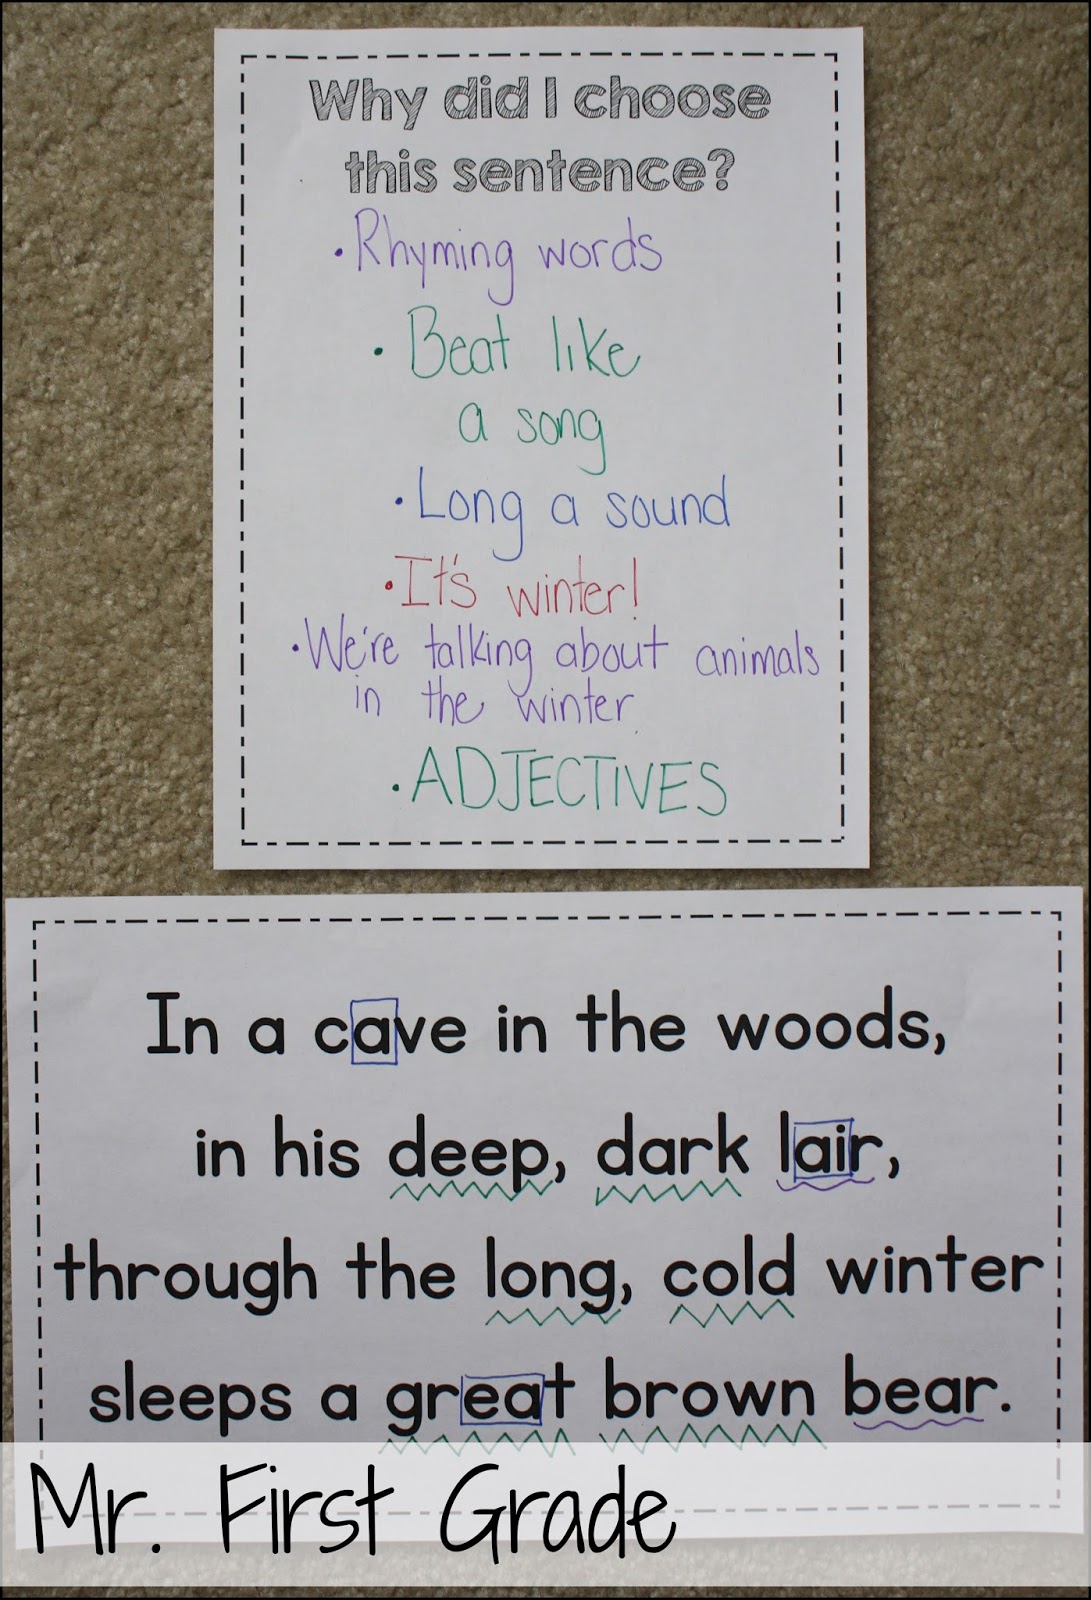 Why did I choose
this sentence?
• Rhyming words
• Beat like
a song
• Long a sound
• It's winter!
• We're talking about animals
in the winter
• ADJECTIVES
In a cave in the woods,
in his deep, dark lair,
through the long, cold winter
sleeps a great brown bear.
Mr. First Grade